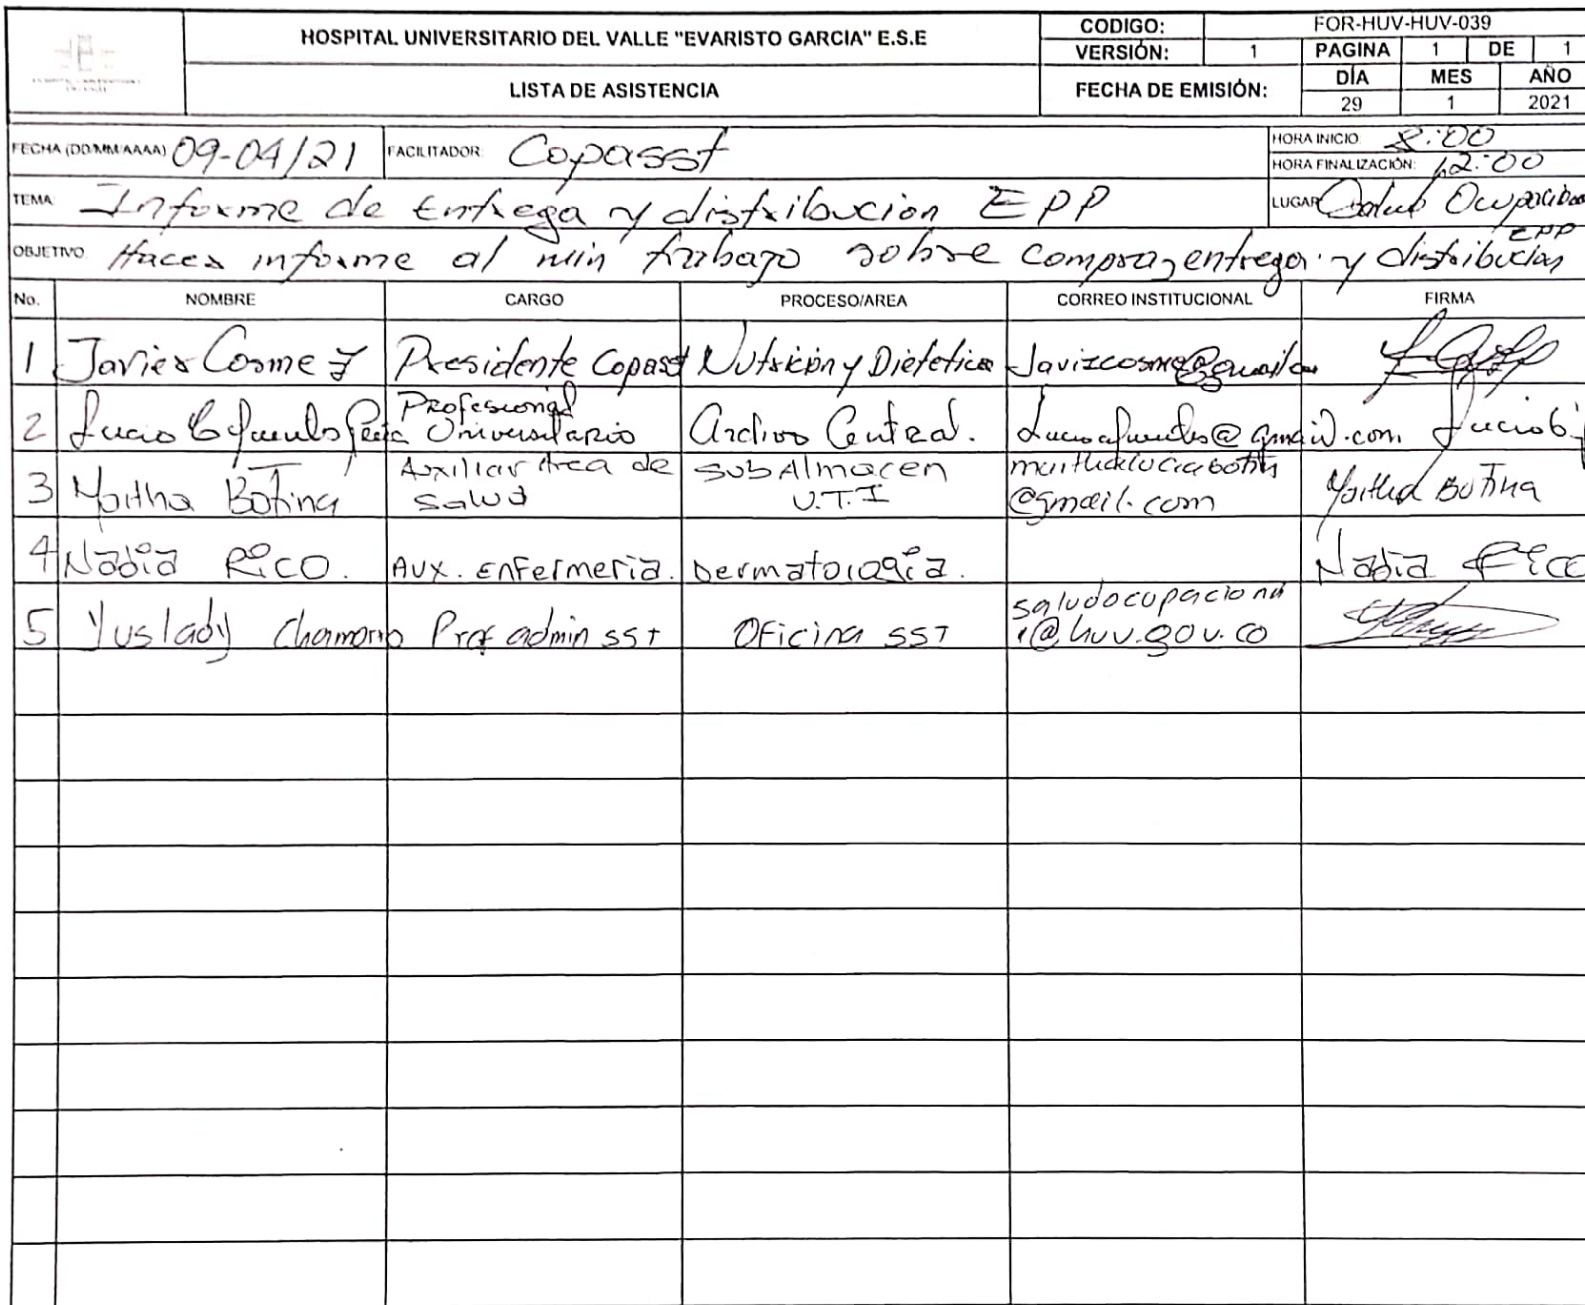 HOSPITAL UNIVERSITARIO DEL VALLE "EVARISTO GARCIA" E.S.E
CODIGO: FOR-HUV-HUV-039
VERSIÓN: 1 PAGINA 1 DE 1
LISTA DE ASISTENCIA
FECHA DE EMISIÓN: DÍA MES AÑO
29 1 2021
FECHA (DD/MM/AAAA) 09-04/21 FACILITADOR: Copasst HORA INICIO: 8:00
HORA FINALIZACIÓN: 12:00
TEMA Informe de Entrega y distribucion EPP LUGAR Salud Ocupacional
OBJETIVO: Hacer informe al min trabajo sobre compra, entrega y distribucion EPP
No. NOMBRE CARGO PROCESO/AREA CORREO INSTITUCIONAL FIRMA
1 Javier Cosme Presidente Copasst Nutrición y Dietetica
2 Profesional Universitario Archivo Central.
3 Martha Botina Auxiliar Area de Salud SubAlmacen U.T.I @gmail.com Martha Botina
4 Nadia Rico. Aux. Enfermeria. Dermatologia. Nadia Rico
5 Yuslady Chamorro Prof admin SST Oficina SST saludocupacional@huv.gov.co